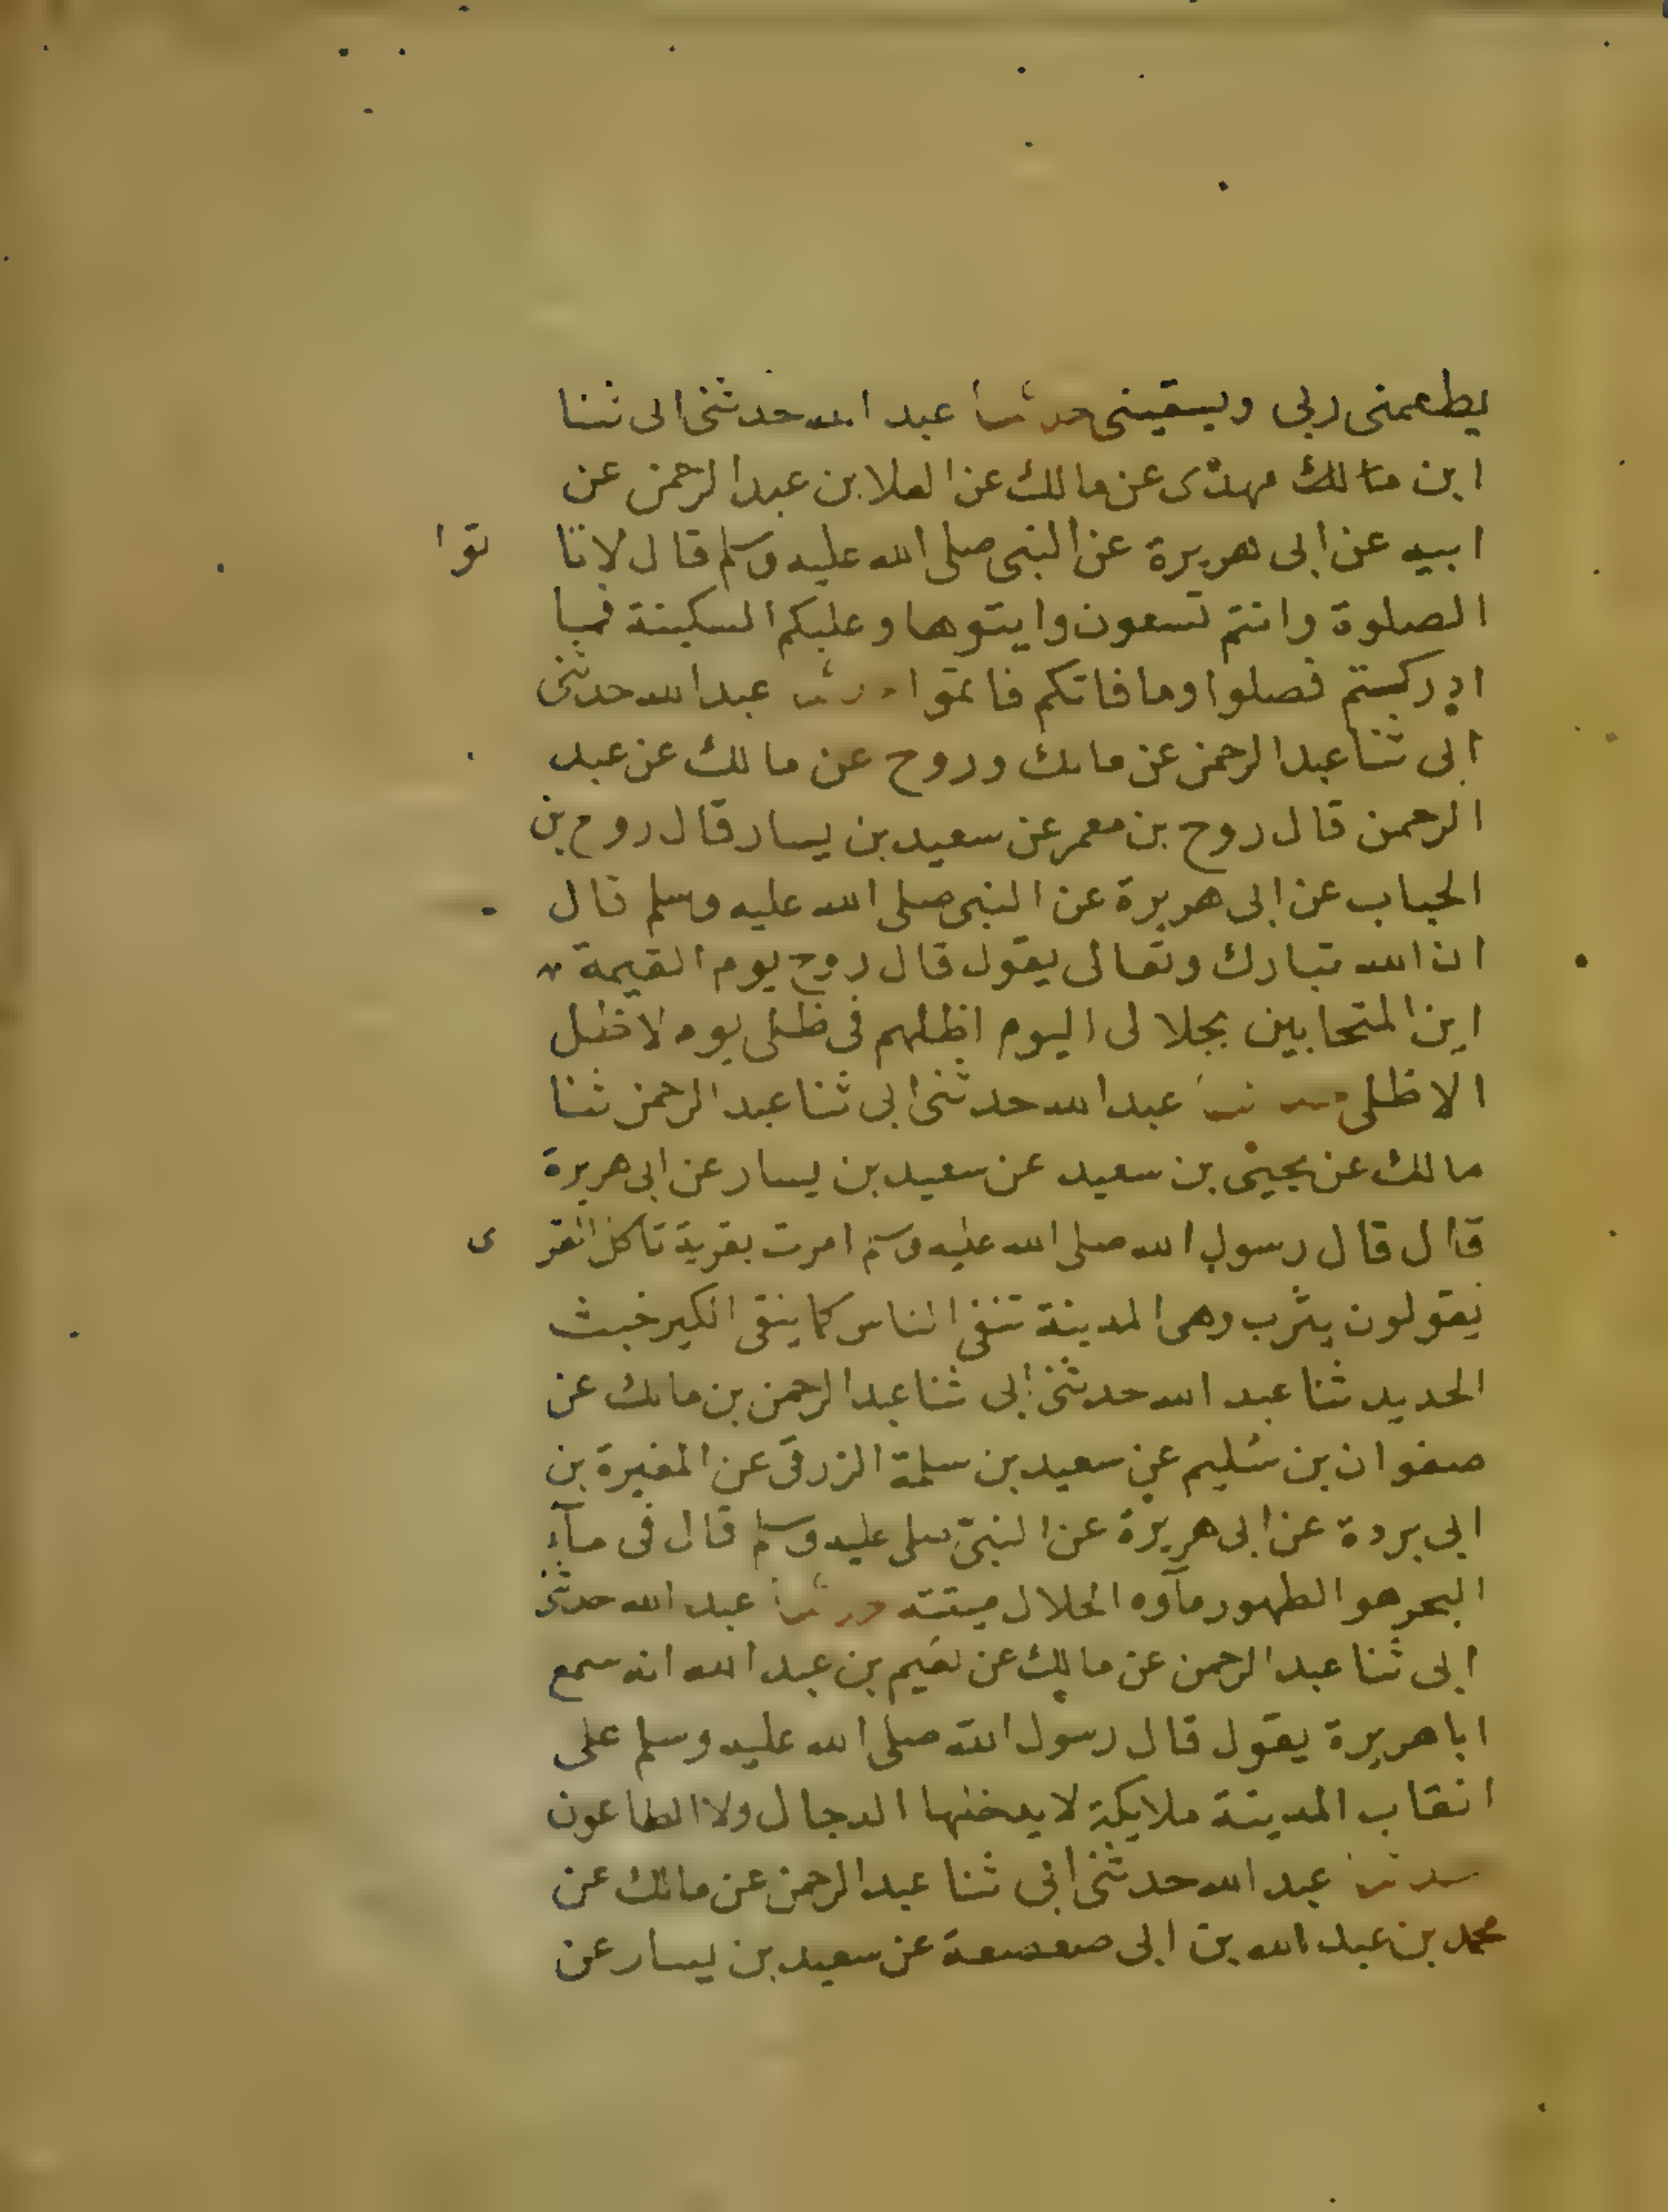 يطعمنى ربى ويسقينى حدثنا عبد الله حدثنى ابى ثنا
ابن مالك مهدى عن مالك عن العلا بن عبد الرحمن عن
ابيه عن ابى هريرة عن النبى صلى الله عليه وسلم قال لاتا توا
الصلوة وانتم تسعون وايتوها وعليكم السكينة فما
ادركتم فصلوا وما فاتكم فاتموا حدثنا عبد الله حدثنى
ابى ثنا عبد الرحمن عن مالك وروح عن مالك عن عبد
الرحمن قال روح بن معمر عن سعيد بن يسار قال روح بن
الحباب عن ابى هريرة عن النبى صلى الله عليه وسلم قال
ان الله تبارك وتعالى يقول قال روح يوم القيمة
اين المتحابين بجلالى اليوم اظلهم فى ظلى يوم لاظل
الاظلى حدثنا عبد الله حدثنى ابى ثنا عبد الرحمن ثنا
مالك عن يحيى بن سعيد عن سعيد بن يسار عن ابى هريرة
قال قال رسول الله صلى الله عليه وسلم امرت بقرية تاكل القر ى
يقولون يثرب وهى المدينة تنفى الناس كما ينفى الكير خبث
الحديد ثنا عبد الله حدثنى ابى ثنا عبد الرحمن بن مالك عن
صفوان بن سليم عن سعيد بن سلمة الزرقى عن المغيرة بن
ابى بردة عن ابى هريرة عن النبى صلى عليه وسلم قال فى مآء
البحر هو الطهور مآوه الحلال ميتته حدثنا عبد الله حدثنى
ابى ثنا عبد الرحمن عن مالك عن نعيم بن عبد الله انه سمع
اباهريرة يقول قال رسول الله صلى الله عليه وسلم على
انقاب المدينة ملايكة لايدخلها الدجال ولا الطاعون
حدثنا عبد الله حدثنى ابى ثنا عبد الرحمن عن مالك عن
محمد بن عبد الله بن ابى صعصعة عن سعيد بن يسار عن